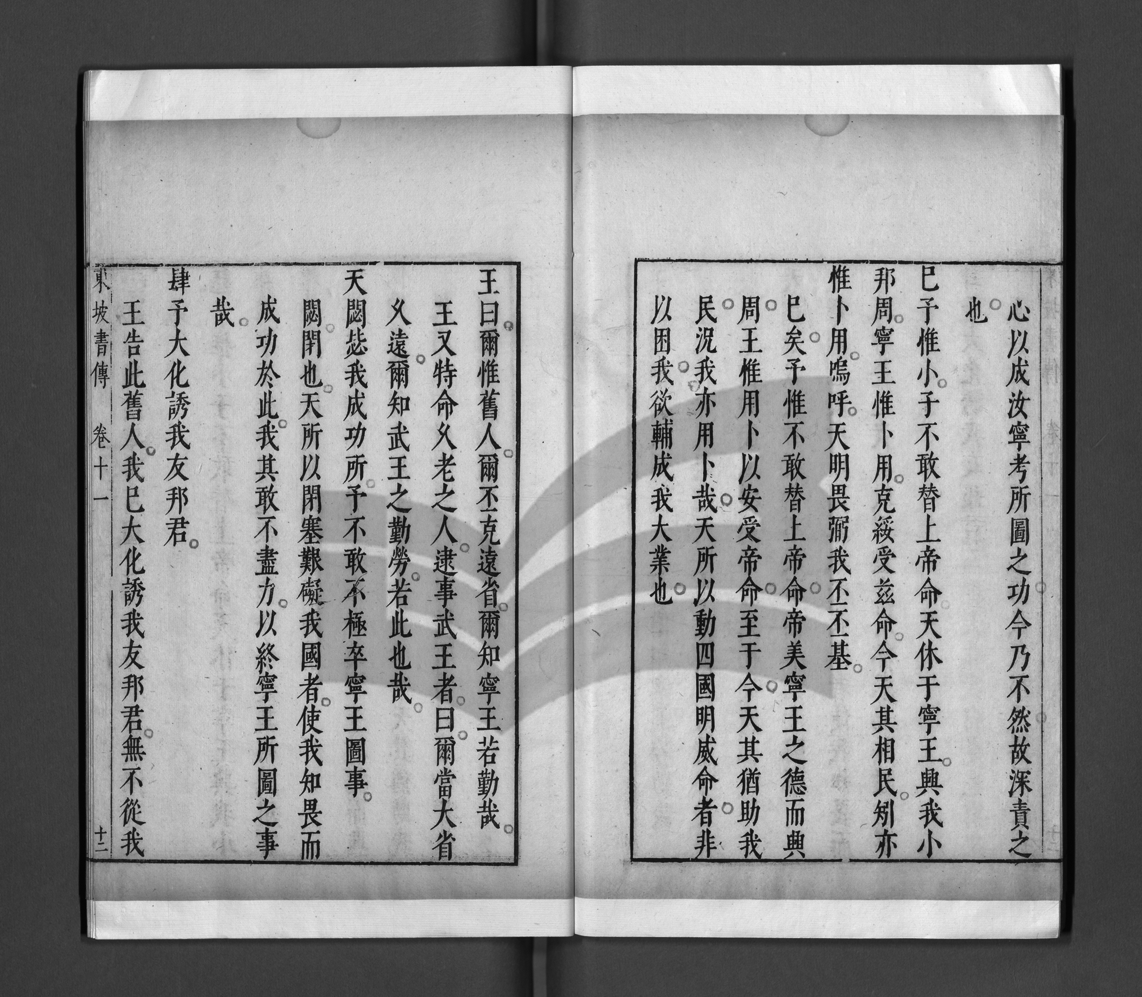 心以成汝寧考所圖之功今乃不然故深責之
也
巳予惟小子不敢替上帝命天休于寧王興我小
邦周寧王惟卜用克綏受兹命今天其相民矧亦
惟卜用嗚呼天明畏弼我丕丕基
巳矣予惟不敢替上帝命帝美寧王之德而興
周王惟用卜以安受帝命至于今天其猶助我
民況我亦用卜哉天所以動四國明威命者非
以困我欲輔成我大業也
王曰爾惟舊人爾丕克遠省爾知寧王若勤哉
王又特命久老之人逮事武王者曰爾當大省
久遠爾知武王之勤勞若此也哉
天閟毖我成功所予不敢不極卒寧王圖事
閟閉也天所以閉塞艱礙我國者使我知畏而
成功於此我其敢不盡力以終寧王所圖之事
哉
肆予大化誘我友邦君
王告此舊人我巳大化誘我友邦君無不從我
東坡書傳 卷十一 十二